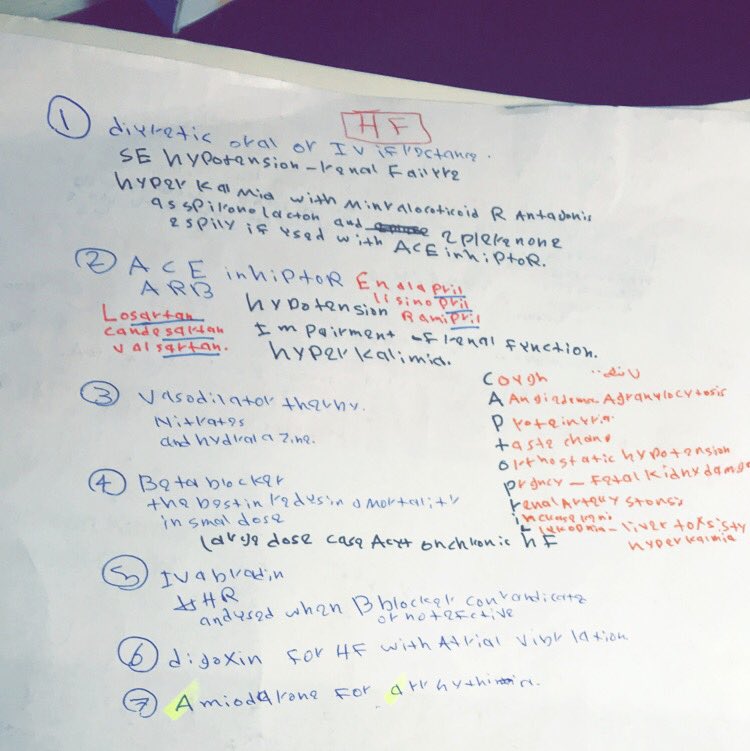 HF
① diuretic oral or IV if
SE hypotension - renal Failure
hyper kalmia with Minraloroticoid R Antadonis
as spironolacton and 2plerenone
espily if used with ACE inhiptoR.
② ACE inhiptoR Enalapril
ARB lisinopril
Ramipril
Losartan
candesartan
valsartan.
hypotension
Impairment of renal function.
hyperkalimia.
③ Vasodilator therby.
Nitrates
and hydralazine.
Cough
A Angiedema Agranylocytosis
Proteinuria
taste chang
orthostatic hypotension
prgncy - Fetal kidny damge
renal Artery stonsis
Lukopnia - liver toxsisty
hyperkalmia
④ Beta blocker
the best in redusin mortality
in smal dose
large dose case Acut onchronic hF
⑤ Ivabradin
↓HR
and used when B blocker contrandicate
or not efective
⑥ digoxin for HF with Atrial Vibrlation
⑦ Amiodarone for